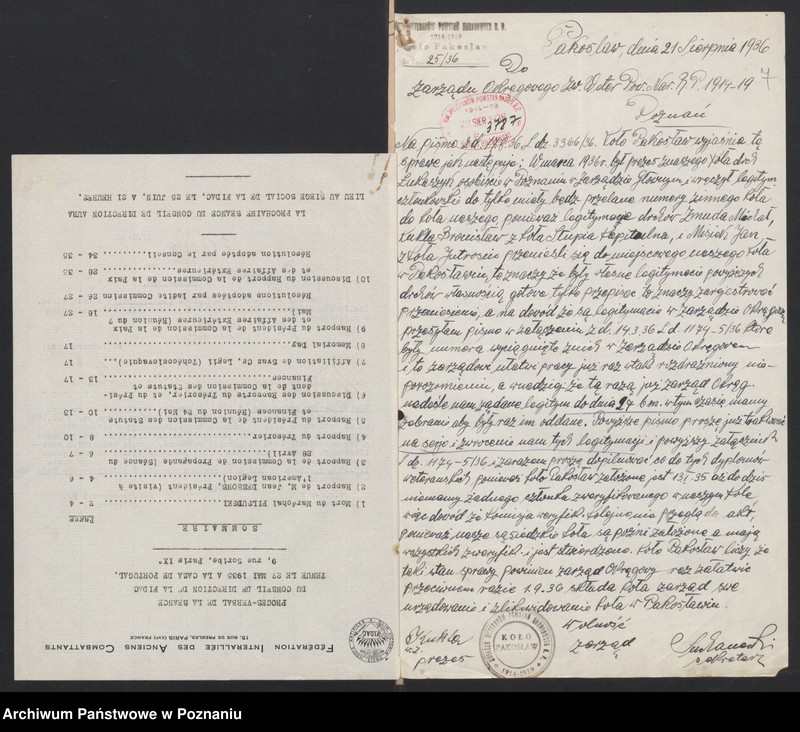 FÉDÉRATION INTERALLIÉE DES ANCIENS COMBATTANTS
15, RUE DE PRESLES, PARIS (XVe) FRANCE
FIDAC
PROCES-VERBAL DE LA SEANCE
DU CONSEIL DE DIRECTION DE LA FIDAC
TENUE LE 27 MAI 1935 A LA CASA DE PORTUGAL,
9, rue Scribe, Paris IX°
SOMMAIRE
Pages
1) Mort du Maréchal PILSUDSKI 2 - 4
2) Rapport de M. Jean DESBONS, Président (visite à
l'American Legion) 4 - 6
3) Rapport de la Commission de Propagande (Séance du
28 Avril) 6 - 7
4) Rapport du Trésorier 8 - 10
5) Rapport du Président de la Commission des Statuts
et Finances (Réunion du 24 Mai) 10 - 13
6) Discussion des Rapports du Trésorier, et du Prési-
dent de la Commission des Statuts et
Finances 13 - 17
7) Affiliation de Svaz Cs. Legii (Tchécoslovaquie) 17
8) Memorial Day 17
9) Rapport du Président de la Commission de la Paix
et des Affaires Extérieures (Réunion du 7
Mai) 18 - 27
Résolutions adoptées par ladite Commission 24 - 27
10) Discussion du Rapport de la Commission de la Paix
et des Affaires Extérieures 28 - 33
Résolution adoptée par le Conseil 34 - 35
LA PROCHAINE SEANCE DU CONSEIL DE DIRECTION AURA
LIEU AU SIEGE SOCIAL DE LA FIDAC, LE 25 JUIN, A 21 HEURES.
1914-1919
Koło Pakosław
25/36
Pakosław, dnia 21 Sierpnia 1936
7
Do
Zarządu Okręgowego Zw. Weter. Pow. Nar. R.P. 1914-19
Poznań
3787
Na pismo z d. 36 L dz. 3366/36. Koło Pakosław wyjaśnia tę
sprawę jak następuje: W marcu 1936 r. był prezes naszego koła druh
Łukaszyk osobiście w Poznaniu w Zarządzie Głownym i wręczył legitym.
członkowski do tylko miały będz przelane numery z innego Koła
do Koła naszego, ponieważ legitymacje druhów Żmuda Michał,
Kukla Bronisław z Koła Stupia Kapitulna, i Misiak Jan
z Koła Jutrosin przenieśli się do miejscowego naszego Koła
w Pakosławiu, to znaczy że były własne legitymacje powyższych
druhów własnością, gotowe tylko przepisać to znaczy zarejestrować
przeniesienie, a na dowód że są legitymacje w Zarządzie Okręgow.
przesyłam pismo w załączeniu z d. 14.3.36 L. d. 1174-5/36 które
były numera wyciągnięte z nich w Zarządzie Okręgowem
i to zarządowi ułatwi pracy już raz w tak rozdrażniony nie-
porozumieniu, a w nadzieji że tą razą już Zarząd Okręg.
nadeśle nam żądane legitym do dnia 27 b m. w tym czasie mamy
zebranie aby były raz im oddane. Powyższe pismo proszę już traktować
na serjo i zwrócenie nam tych legitymacji i powyższy załącznik
L dz. 1174-5/36 i zarazem proszę dopilnować co do tych dyplomów
weterańskich ponieważ koło Pakosław założone jest 13/1.35 aż do dziś
niemamy żadnego członka zweryfikowanego w naszym kole,
więc dowód że Komisja weryfik. kolejnemi przegląda akt,
ponieważ nasze sąsiedzkie koła są późni założone a mają
wszystkich zweryfik. i jest stwierdzono. Koło Pakosław liczy że
taki stan sprawy powinien zarząd Okręgowy raz załatwić
przeciwnem razie 1.9.36 składa koła zarząd, swe
urzędowanie i zlikwidowanie koła w Pakosławiu.
Wolność
Zarząd
Kukla
w. z.
prezes
KOŁO
PAKOSŁAW
1914-1919
sekretarz